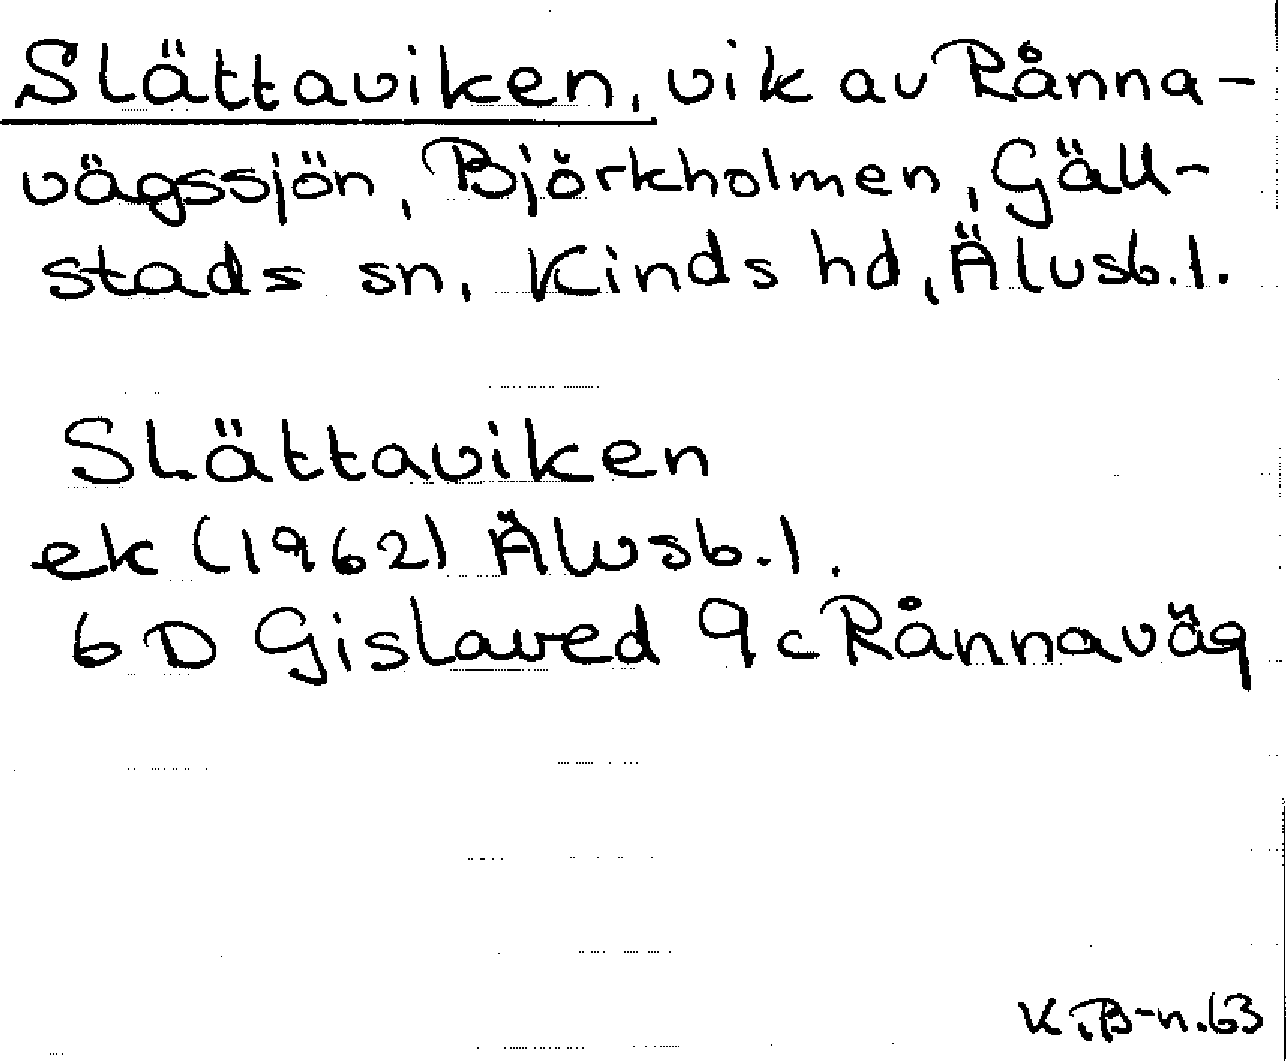 Slättaviken, vik av Rånna-
vägssjön, Björkholmen, Gäll-
stads sn, Kinds hd, Älvsb.l.
Slättaviken
ek (1962) Älvsb.l.
6 D Gislaved 9c Rånnaväg
K.B-n.63